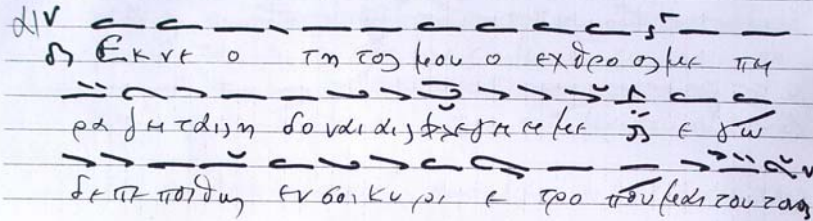 Εκ νε ο τη τος μου ο εχθρο ος με πει
ρα ζει ταις η δο ναις φλεγει ει με ε γω
δε πε ποιθως εν σοι κυ ρι ε τρο που μαι του τον